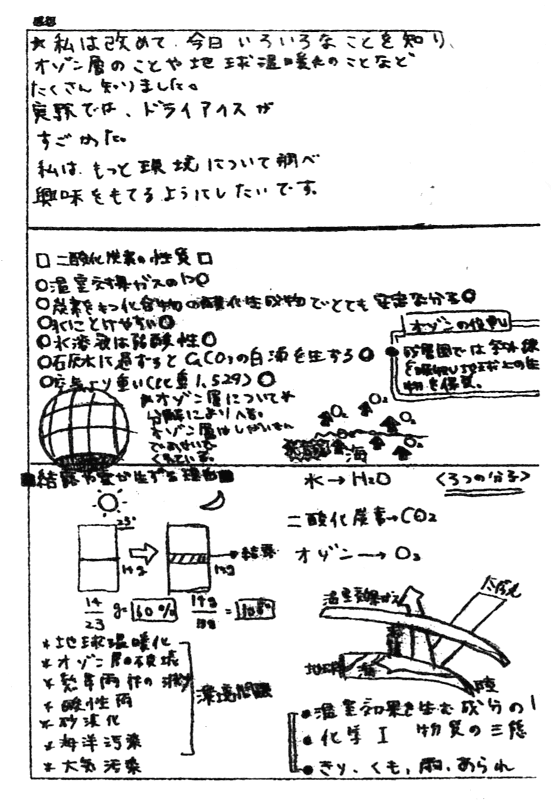 感想
★ 私は改めて、今日 いろいろな ことを知り、
オゾン層のことや地球温暖化のことなど
たくさん知りました。
実験では、ドライアイスが
すごかった。
私は、もっと環境について調べ
興味をもてるようにしたいです。
□ 二酸化炭素の性質 □
○温室効果ガスの1つ○
○炭素をもつ化合物の酸化生成物でとても安定な分子○
○水にとけやすい○
○水溶液は弱酸性○
○石灰水に通すと CaCO3の白濁を生ずる○
○空気より重い(比重1.529)○
オゾンの役割
●成層圏では紫外線
を吸収し地球上の生
物を保護。
★オゾン層について★
オゾン層は
O2
O2
O2
O2
海
■結露や雲が生ずる理由■
水→H2O
<3つの分子>
二酸化炭素→CO2
オゾン→O3
23°
14g
結果
14
23
60%
温室効果ガス
たいよう
地球
陸
★地球温暖化
★オゾン層の破壊
★熱帯雨林の減少
★酸性雨
★砂漠化
★海洋汚染
★大気汚染
環境問題
●温室効果を生む成分の1
●化学I 物質の三態
●きり、くも、雨、あられ